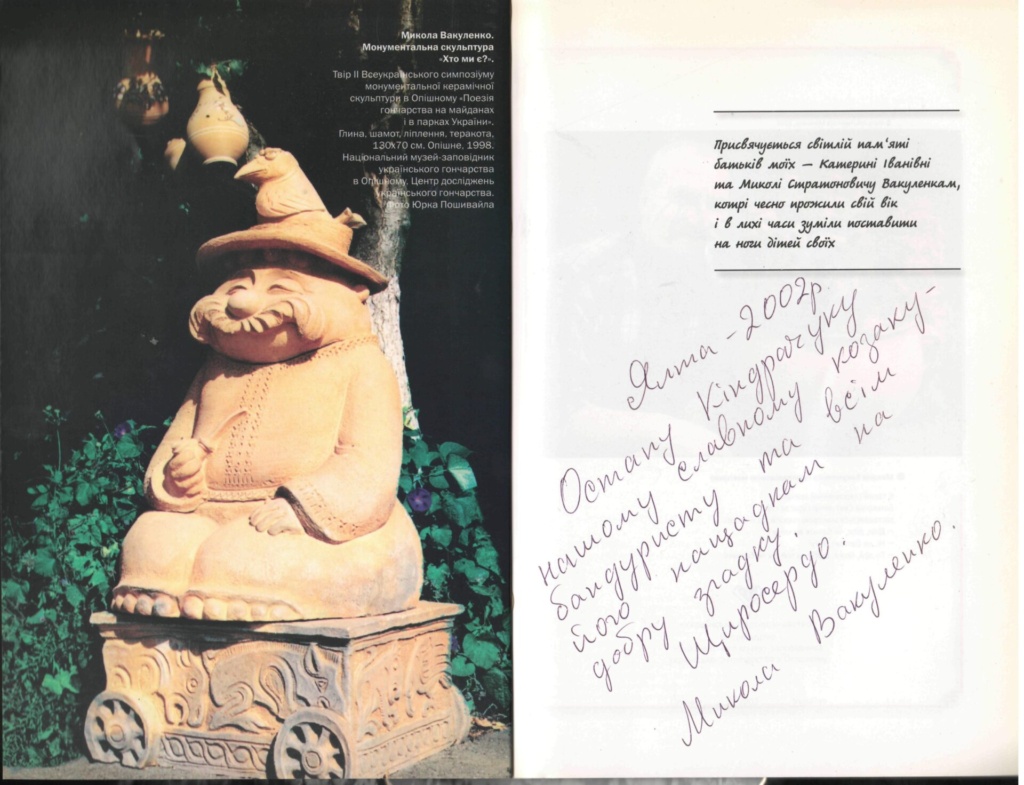 Микола Вакуленко.
Монументальна скульптура
«Хто ми є?».
Твір ІІ Всеукраїнського симпозіуму
монументальної керамічної
скульптури в Опішному «Поезія
гончарства на майданах
і в парках України».
Глина, шамот, ліплення, теракота,
130х70 см. Опішне, 1998.
Національний музей-заповідник
українського гончарства
в Опішному, Центр досліджень
українського гончарства.
Фото Юрка Пошивайла
Присвячується світлій пам'яті
батьків моїх — Катерині Іванівні
та Миколі Стратоновичу Вакуленкам,
котрі чесно прожили свій вік
і в лихі часи зуміли поставити
на ноги дітей своїх
Ялта - 2002р.
Остапу Кіндрачуку
нашому славному козаку-
бандуристу та всім
його нащадкам на
добру згадку.
Щиросердо.
Микола Вакуленко.